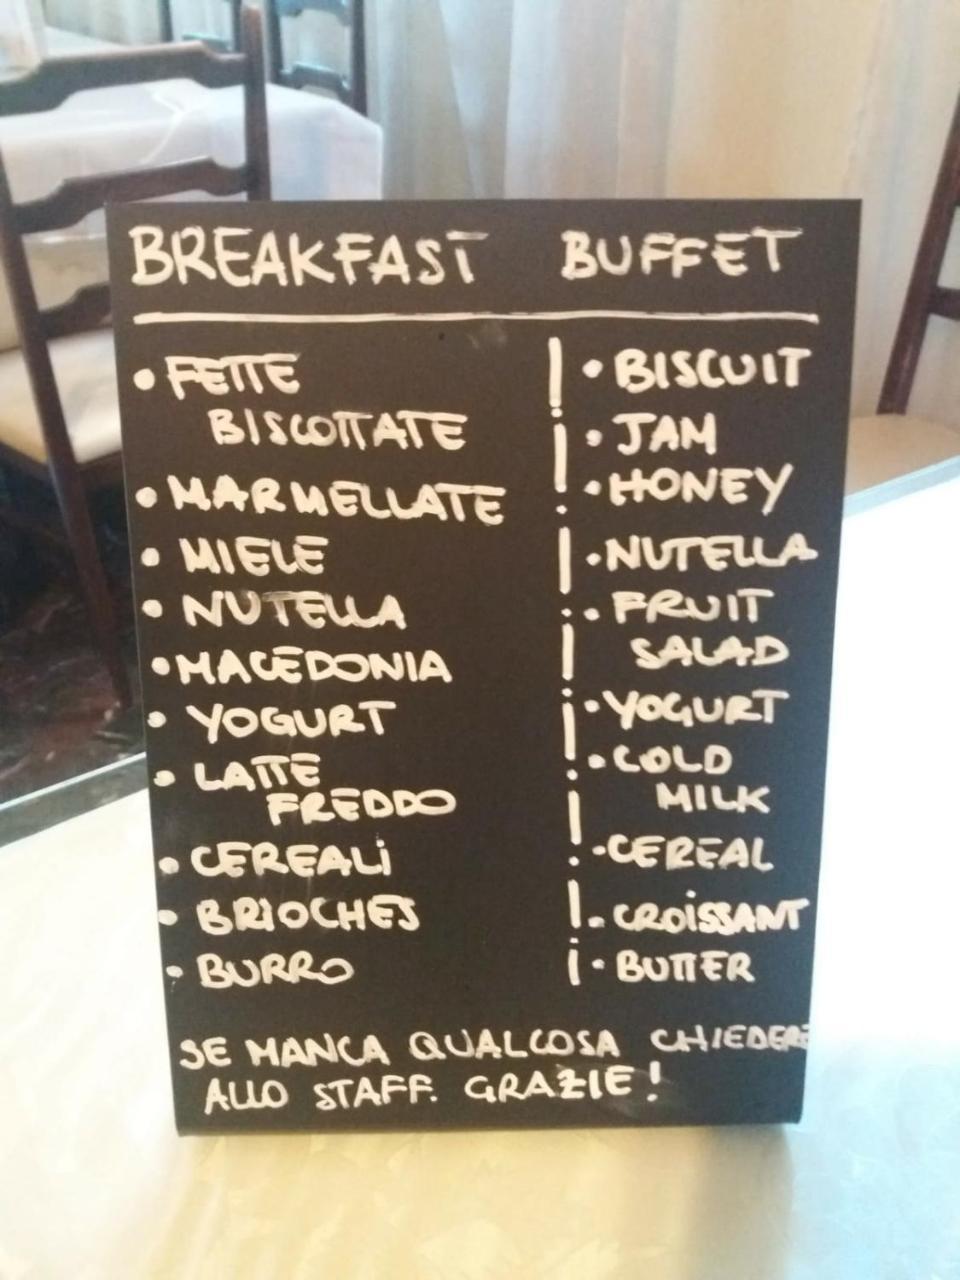 BREAKFAST BUFFET
• FETTE
BISCOTTATE
• MARMELLATE
• MIELE
• NUTELLA
• MACEDONIA
• YOGURT
• LATTE
FREDDO
• CEREALI
• BRIOCHES
• BURRO
• BISCUIT
• JAM
• HONEY
• NUTELLA
• FRUIT
SALAD
• YOGURT
• COLD
MILK
• CEREAL
• CROISSANT
• BUTTER
SE MANCA QUALCOSA CHIEDERE
ALLO STAFF. GRAZIE!